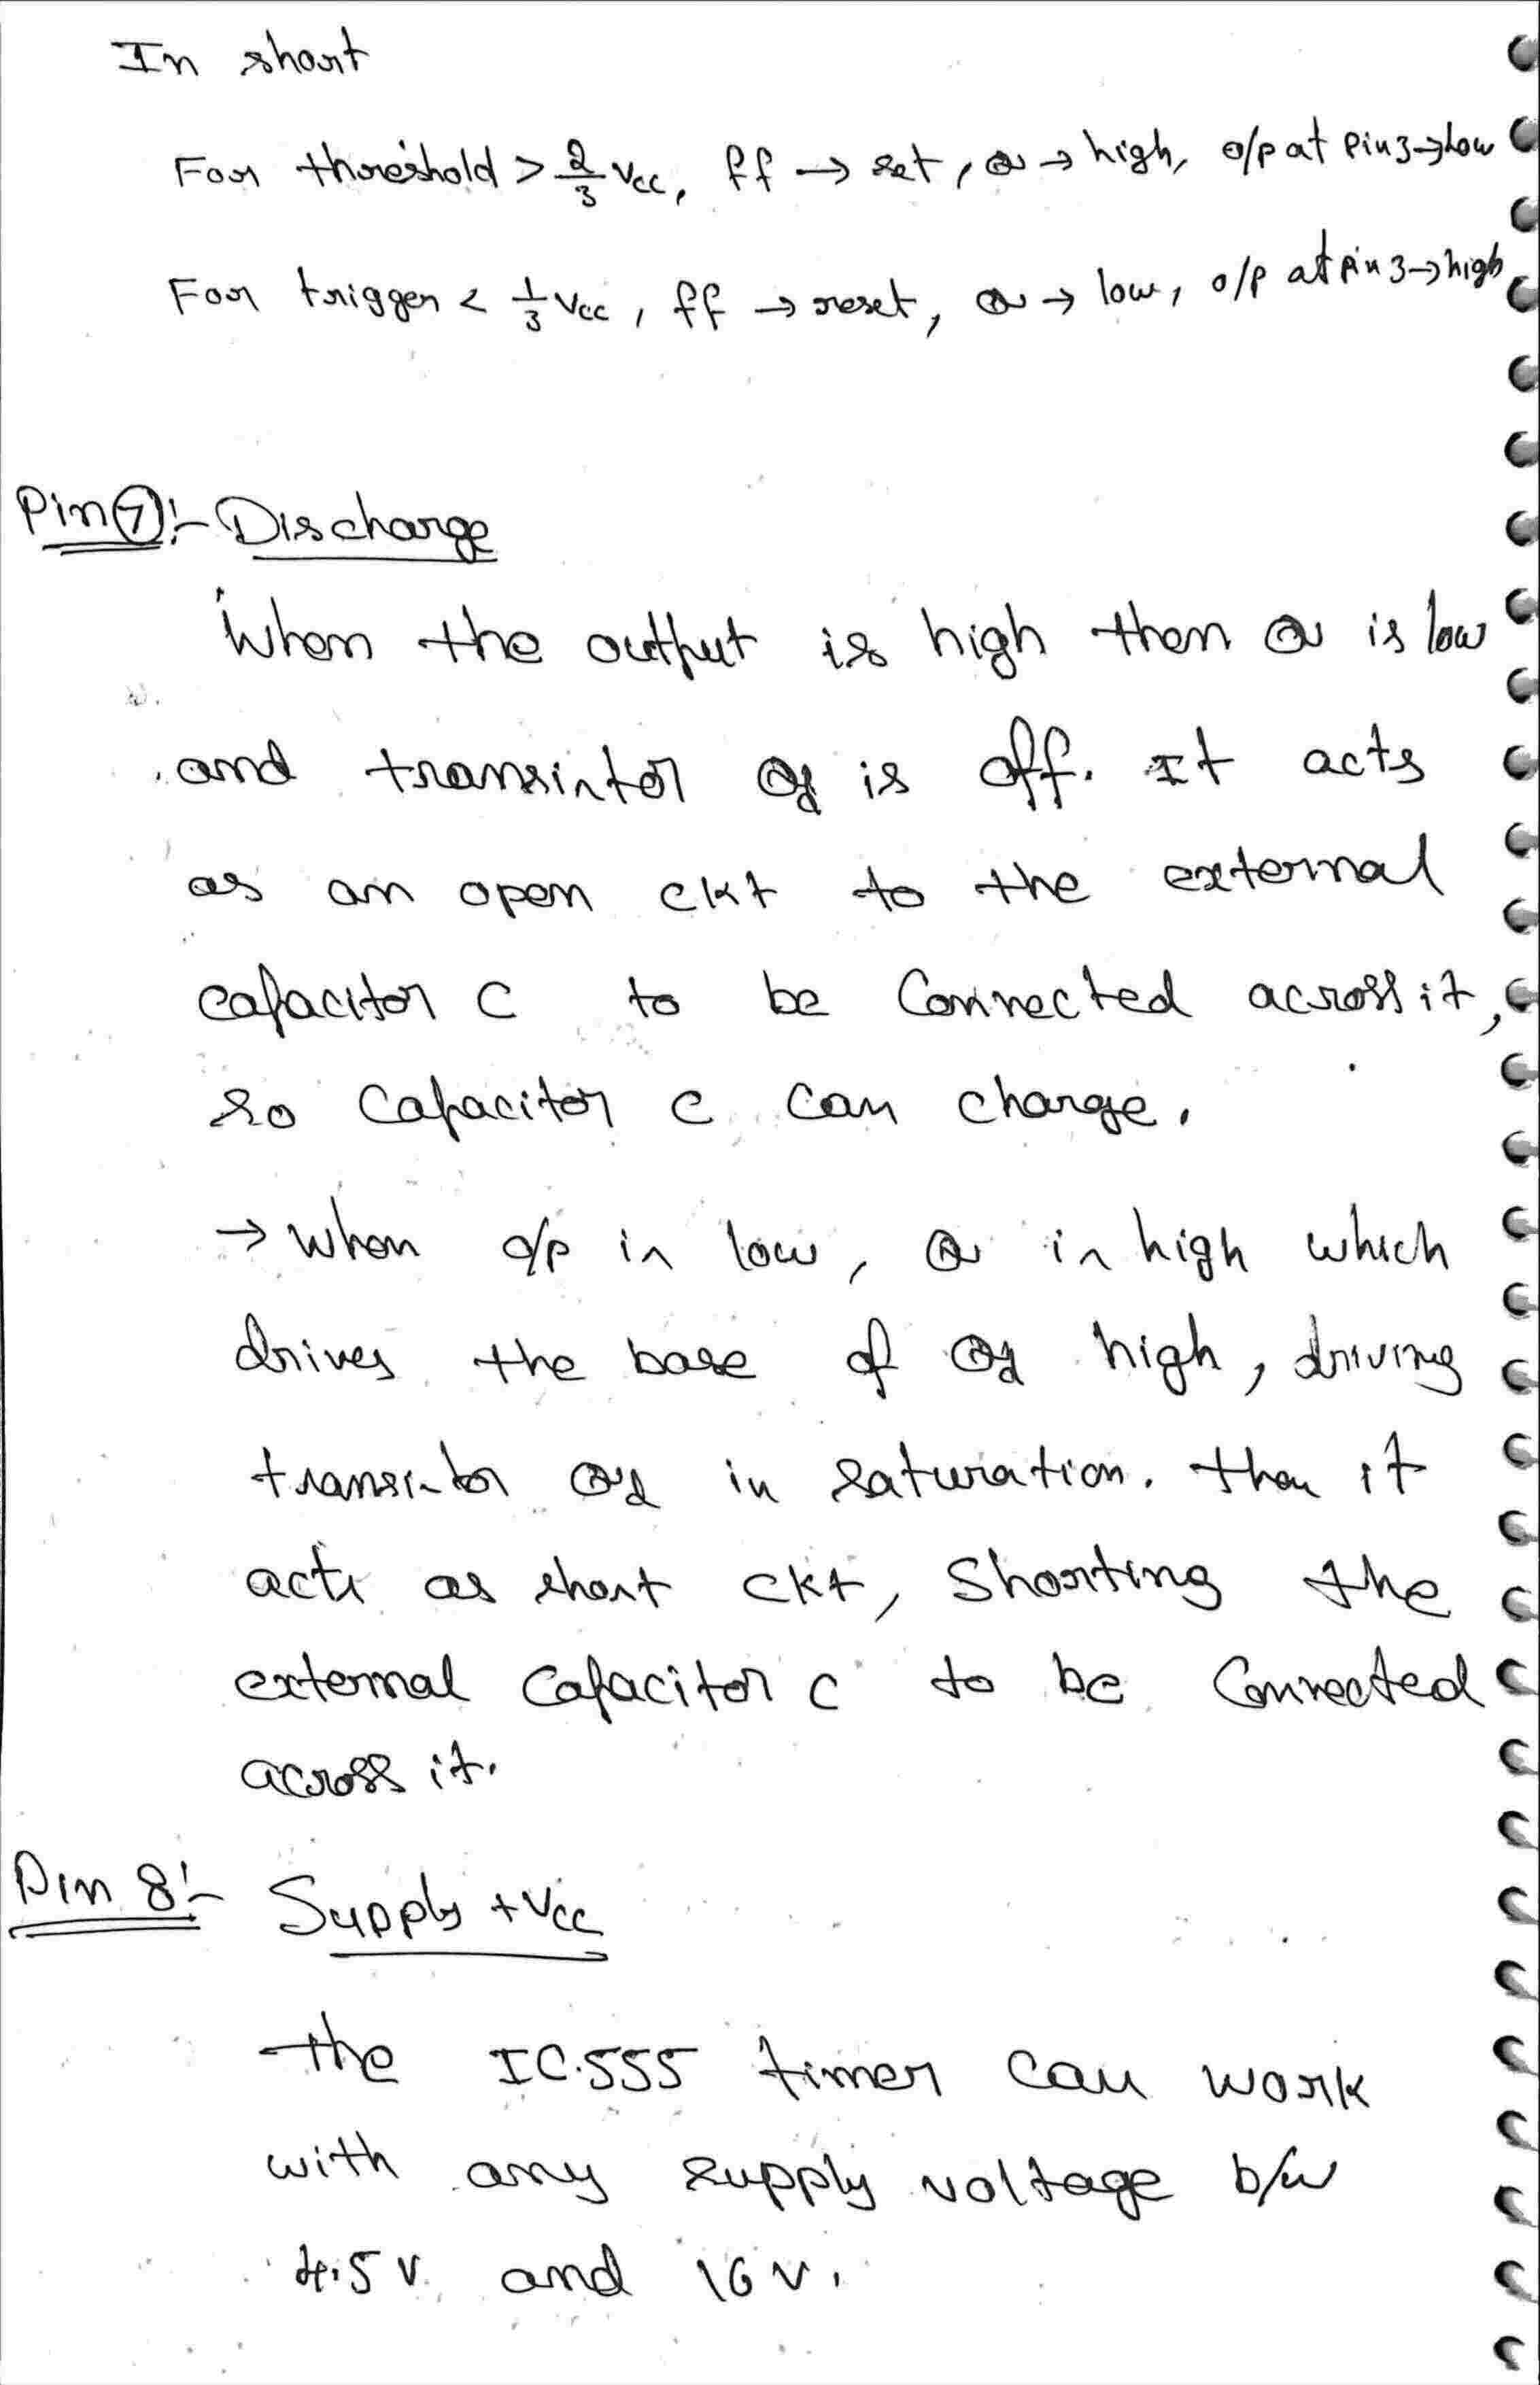 In short
For threshold > 2/3 Vcc, ff → set, Q → high, o/p at Pin 3 → Low
For trigger < 1/3 Vcc, ff → reset, Q → low, o/p at pin 3 → high
Pin 7:- Discharge
When the output is high then Q is low
and transistor Qd is off. It acts
as an open ckt to the external
capacitor C to be Connected across it,
so Capacitor C can charge.
→ When o/p is low, Q is high which
drives the base of Qd high, driving
transistor Qd in saturation. then it
acts as short ckt, Shorting the
external Capacitor C to be Connected
across it.
Pin 8:- Supply +Vcc
The IC.555 timer can work
with any supply voltage b/w
4.5 V and 16 V.